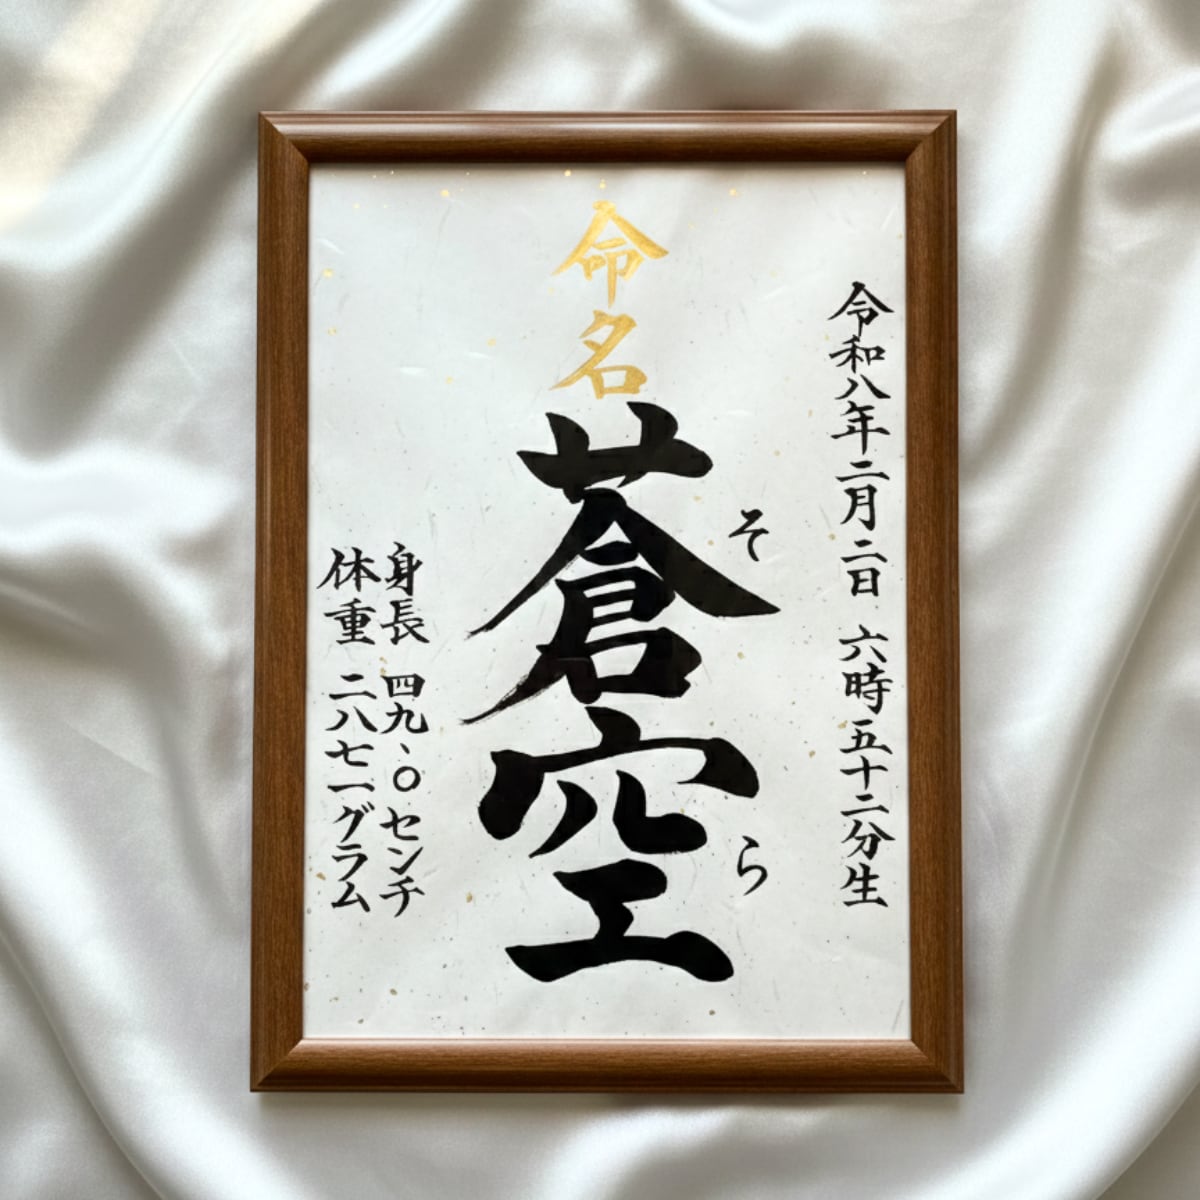 令和八年二月二日 六時五十二分生
命名
蒼空
そら
身長 四九、〇センチ
体重 二八七一グラム